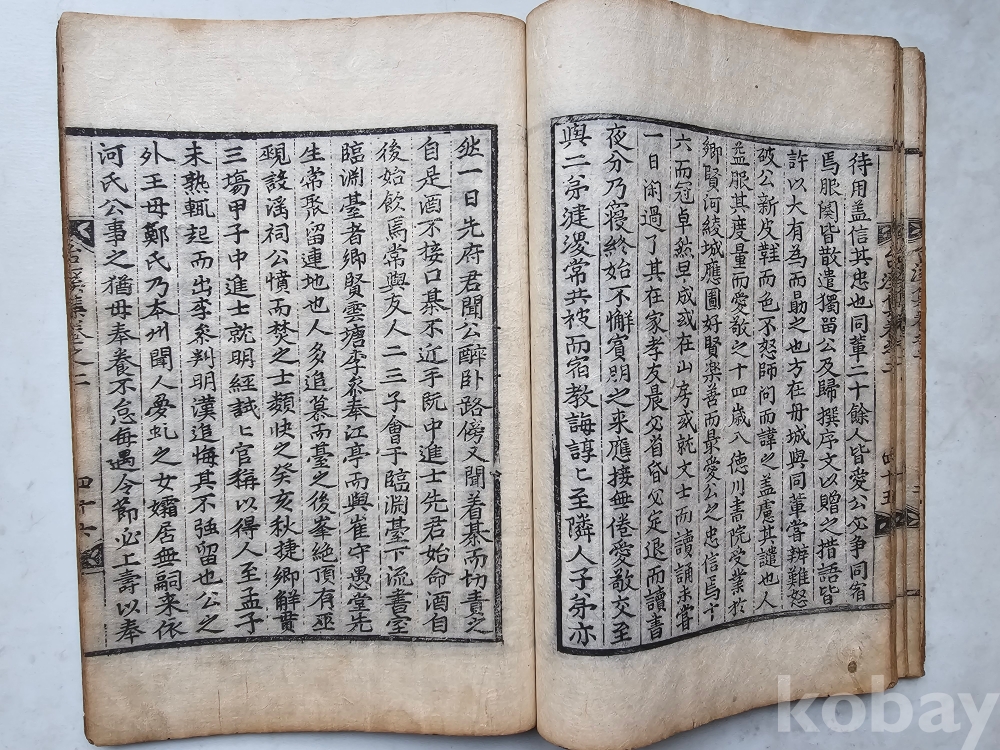 待用盖信其忠也同輩二十餘人皆愛公父爭同宿
焉服闋皆散遣獨留公及歸撰序文以贈之措語皆
許以大有為而勖之也方在丹城與同輩嘗辨難怒
破公新皮鞋而色不怒師問而諱之盖慮其譴也人
益服其度量而愛敬之十四歲入德川書院受業於
鄉賢河綾城應圖好賢樂善而最愛公之忠信焉十
六而冠卓然早成或在山房或就文士而讀誦未嘗
一日閑過了其在家孝友晨父省昏父定退而讀書
夜分乃寢終始不懈賓朋之來應接無倦愛敬交至
與二弟漣溭常共被而宿教誨諄〻至隣人子弟亦
台溪集卷之二
四十五
然一日先府君聞公醉卧路傍又聞着棊而切責之
自是酒不接口棊不近手阮中進士先君始命酒自
後始飲焉常與友人二三子會于臨淵臺下流書室
臨淵臺者鄉賢雲塘李叅奉江亭而與崔守愚堂先
生常聚留連地也人多追慕而臺之後峯絶頂有巫
覡設滛祠公憤而焚之士類快之癸亥秋捷鄉解貫
三塲甲子中進士就明經試〻官稱以得人至孟子
未熟輒起而出李叅判明漢追悔其不强留也公之
外王母鄭氏乃本州聞人憂虬之女孀居無嗣來依
河氏公事之猶母奉養不怠每遇令節必上壽以奉
台溪集卷之二
四十六
kobay